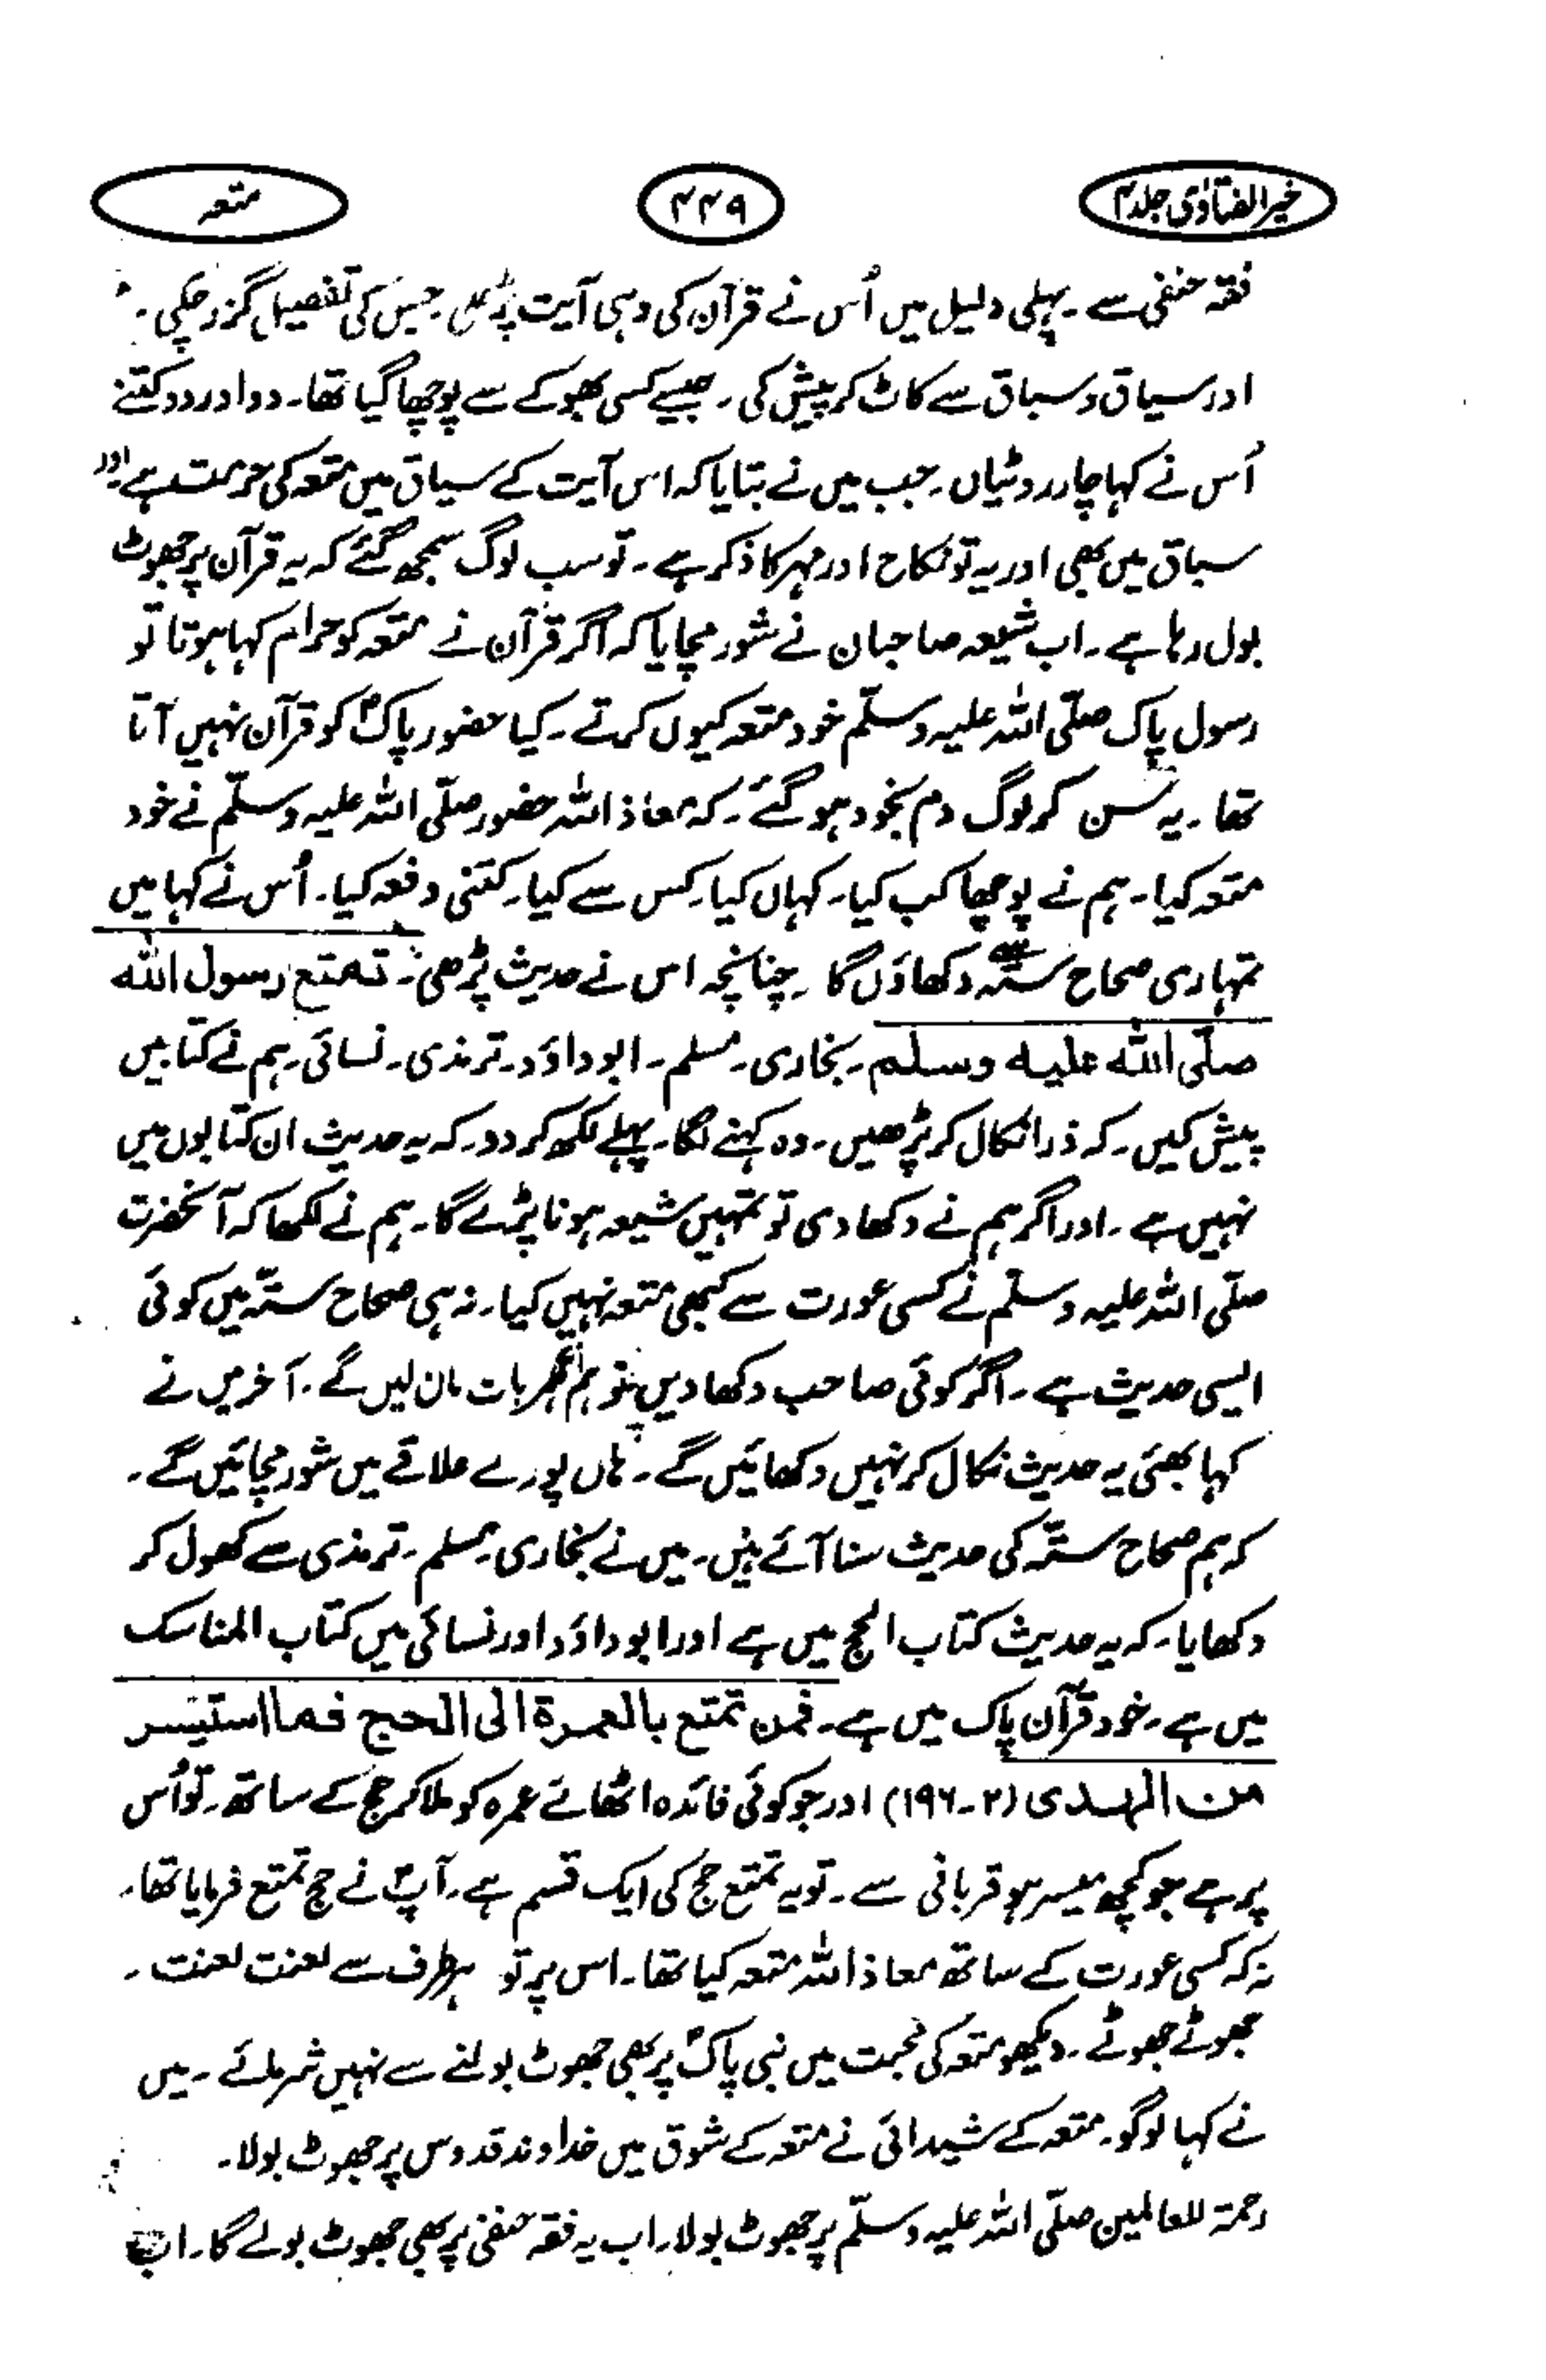 خیر الفتاوٰی جلد ۴
۴۴۹
متعہ
فقہ حنفی سے ۔ پہلی دلیل میں اُس نے قرآن کی وہی آیت پڑھی ۔ جس کی تفصیل گزر چکی ۔
اور سیاق و سباق سے کاٹ کر پیش کی ۔ جیسے کسی بھوکے سے پوچھا گیا تھا ۔ دو اور دو کتنے
اُس نے کہا چار روٹیاں ۔ جب میں نے بتایا کہ اس آیت کے سیاق میں متعہ کی حرمت ہے اور
سباق میں بھی اور یہ تو نکاح اور مہر کا ذکر ہے ۔ تو سب لوگ سمجھ گئے کہ یہ قرآن پر جھوٹ
بول رہا ہے ۔ اب شیعہ صاحبان نے شور مچایا کہ اگر قرآن نے متعہ کو حرام کہا ہوتا تو
رسول پاک صلّی اللہ علیہ وسلّم خود متعہ کیوں کرتے ۔ کیا حضور پاکؐ کو قرآن نہیں آتا
تھا ۔ یہ سن کر لوگ دم بخود ہو گئے ۔ کہ معاذ اللہ حضور صلّی اللہ علیہ وسلّم نے خود
متعہ کیا ۔ ہم نے پوچھا کب کیا ۔ کہاں کیا ۔ کس سے کیا ۔ کتنی دفعہ کیا ۔ اُس نے کہا میں
تمہاری صحاح ستّہ سے دکھاؤں گا ۔ چنانچہ اس نے حدیث پڑھی ۔ تمتع رسول اللہ
صلّی اللہ علیہ وسلم ۔ بخاری ۔ مسلم ۔ ابو داؤد ۔ ترمذی ۔ نسائی ۔ ہم نے کتابیں
پیش کیں ۔ کہ ذرا نکال کر پڑھیں ۔ وہ کہنے لگا ۔ پہلے لکھ کر دو ۔ کہ یہ حدیث ان کتابوں میں
نہیں ہے ۔ اور اگر ہم نے دکھا دی تو تمہیں شیعہ ہونا پڑے گا ۔ ہم نے لکھا کہ آنحضرت
صلّی اللہ علیہ وسلّم نے کسی عورت سے کبھی متعہ نہیں کیا ۔ نہ ہی صحاح ستّہ میں کوئی
ایسی حدیث ہے ۔ اگر کوئی صاحب دکھا دیں تو ہم بات مان لیں گے ۔ آخر میں نے
کہا بھئی یہ حدیث نکال کر نہیں دکھائیں گے ۔ ہاں پورے علاقے میں شور مچائیں گے ۔
کہ ہم صحاح ستّہ کی حدیث سنا آئے ہیں ۔ میں نے بخاری ۔ مسلم ۔ ترمذی سے کھول کر
دکھایا ۔ کہ یہ حدیث کتاب الحج میں ہے اور ابو داؤد اور نسائی میں کتاب المناسک
میں ہے ۔ خود قرآن پاک میں ہے ۔ فمن تمتع بالعمرة الی الحج فما استیسر
من الہدی (۲ ۔ ۱۹۶) اور جو کوئی فائدہ اٹھائے عمرہ کو ملا کر حج کے ساتھ ۔ تو اُس
پر ہے جو کچھ میسر ہو قربانی سے ۔ تو یہ تمتع حج کی ایک قسم ہے ۔ آپؐ نے حج تمتع فرمایا تھا ۔
نہ کہ کسی عورت کے ساتھ معاذ اللہ متعہ کیا تھا ۔ اس پر تو ہر طرف سے لعنت لعنت ۔
جھوٹے جھوٹے ۔ دیکھو متعہ کی محبت میں نبی پاکؐ پر بھی جھوٹ بولنے سے نہیں شرمائے ۔ میں
نے کہا لوگو ۔ متعہ کے شیدائی نے متعہ کے شوق میں خداوند قدوس پر جھوٹ بولا ۔
رحمۃ للعالمین صلّی اللہ علیہ وسلّم پر جھوٹ بولا ۔ اب یہ فقہ حنفی پر بھی جھوٹ بولے گا ۔ اب